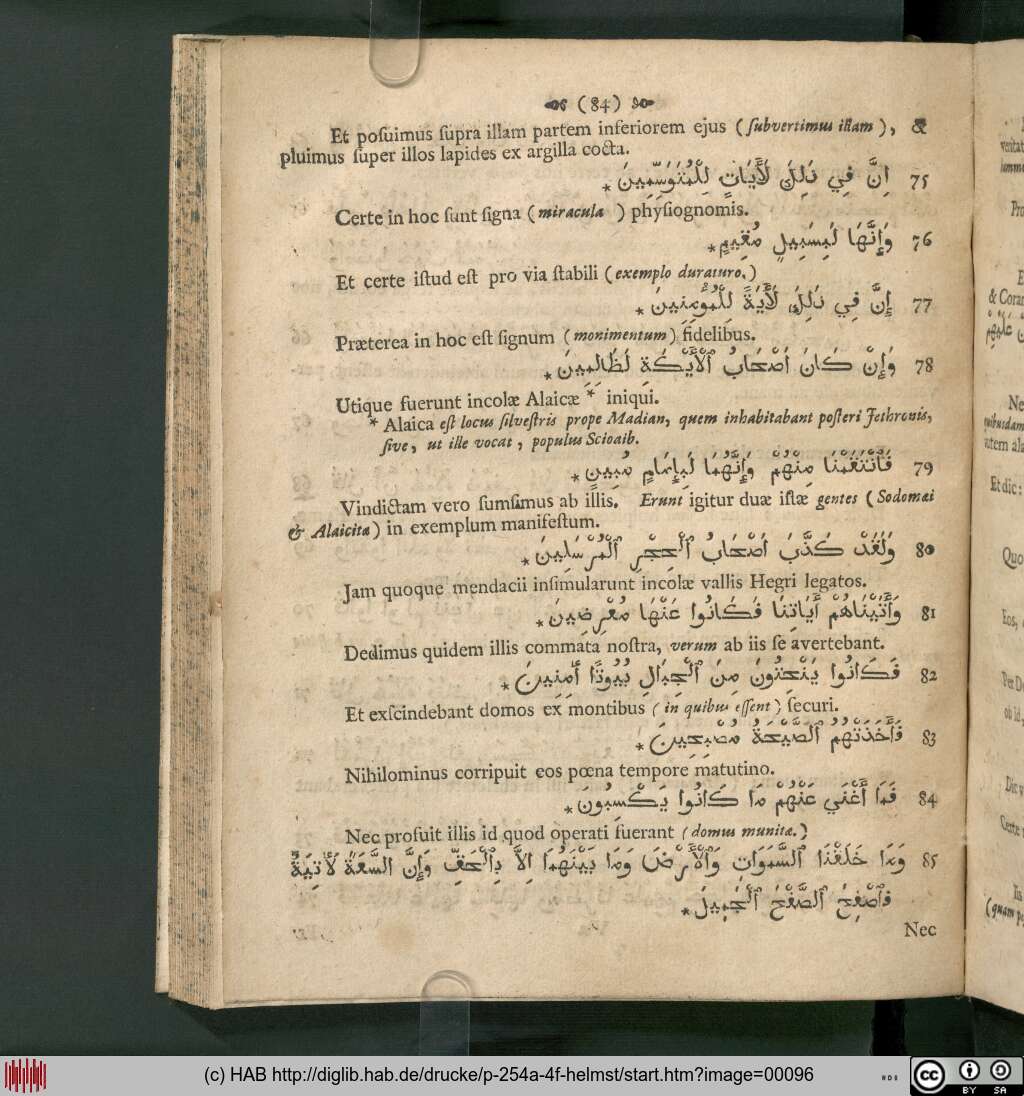 (84)
Et posuimus supra illam partem inferiorem ejus (subvertimus illam), &
pluimus super illos lapides ex argilla cocta.
إِنَّ فِي ذَٰلِكَ لَأَيَاتٍ لِلْمُتَوَسِّمِينَ * 75
Certe in hoc sunt signa (miracula) physiognomis.
وَإِنَّهَا لَبِسَبِيلٍ مُقِيمٍ * 76
Et certe istud est pro via stabili (exemplo duraturo.)
إِنَّ فِي ذَٰلِكَ لَأَيَةً لِلْمُؤْمِنِينَ * 77
Præterea in hoc est signum (monimentum) fidelibus.
وَإِنْ كَانَ أَصْحَابُ ٱلْأَيْكَةِ لَظَالِمِينَ * 78
Utique fuerunt incolæ Alaicæ * iniqui.
* Alaica est locus silvestris prope Madian, quem inhabitabant posteri Jethronis,
sive, ut ille vocat, populus Scioaib.
فَٱنْتَقَمْنَا مِنْهُمْ وَإِنَّهُمَا لَبِإِمَامٍ مُبِينٍ * 79
Vindictam vero sumsimus ab illis. Erunt igitur duæ istæ gentes (Sodomæi
& Alaicitæ) in exemplum manifestum.
وَلَقَدْ كَذَّبَ أَصْحَابُ ٱلْحِجْرِ ٱلْمُرْسَلِينَ * 80
Jam quoque mendacii insimularunt incolæ vallis Hegri legatos.
وَأَتَيْنَاهُمْ أَيَاتِنَا فَكَانُوا عَنْهَا مُعْرِضِينَ * 81
Dedimus quidem illis commata nostra, verum ab iis se avertebant.
فَكَانُوا يَنْحِتُونَ مِنَ ٱلْجِبَالِ بُيُوتًا أَمِنِينَ * 82
Et exscindebant domos ex montibus (in quibus essent) securi.
فَأَخَذَتْهُمُ ٱلصَّيْحَةُ مُصْبِحِينَ * 83
Nihilominus corripuit eos pœna tempore matutino.
فَمَا أَغْنَي عَنْهُمْ مَا كَانُوا يَكْسِبُونَ * 84
Nec profuit illis id quod operati fuerant (domus munitæ.)
وَمَا خَلَقْنَا ٱلسَّمَوَاتِ وَٱلْأَرْضَ وَمَا بَيْنَهُمَا إِلَّا بِٱلْحَقِّ وَإِنَّ ٱلسَّعَةَ لَأَتِيَةٌ 85
فَٱصْفِحُ ٱلصَّفْحَ ٱلْجَمِيلَ *
Nec
(c) HAB http://diglib.hab.de/drucke/p-254a-4f-helmst/start.htm?image=00096
cc BY SA